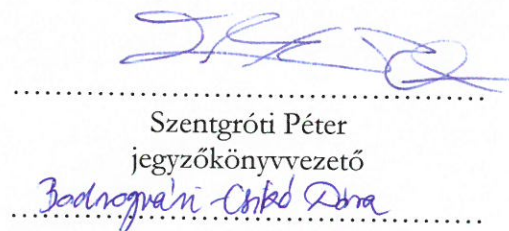 ........................................................
Szentgróti Péter
jegyzőkönyvvezető
Bodrogvári-Csikó Dóra
........................................................